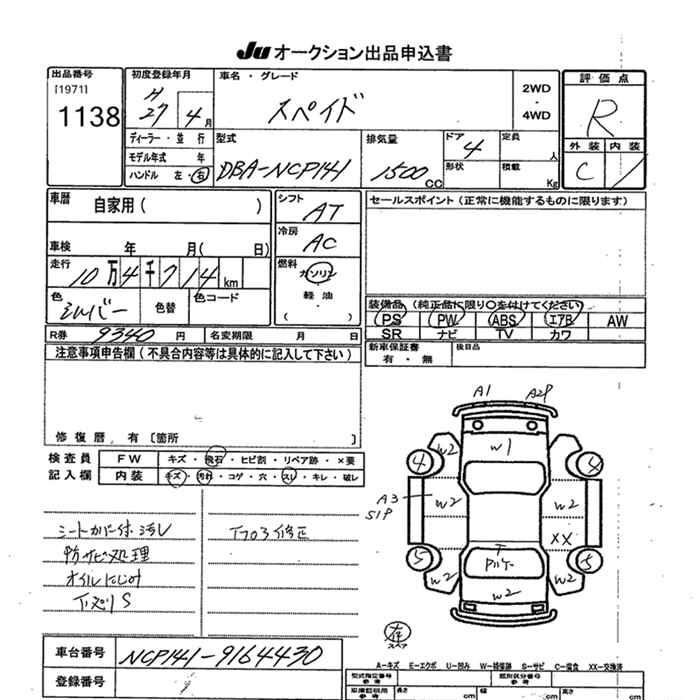 JU オークション出品申込書
出品番号
[1971]
1138
初度登録年月
H 27 4月
車名・グレード
スペイド
2WD
・
4WD
評価点
R
外装 内装
C 1
ディーラー・並行
モデル年式 年
ハンドル 左・右
型式
DBA-NCP141
排気量
1500 CC
ドア
4
形状
定員
人
積載
Kg
車歴
自家用( )
車検 年 月( 日)
走行
10万4千714km
色
シルバー
色替
色コード
シフト
AT
冷房
AC
燃料
ガソリン
軽油
( )
セールスポイント(正常に機能するものに限ります)
装備品(純正品に限り○を付けてください)
PS PW ABS エアB AW
SR ナビ TV カワ
R券 9340円
名変期限 月 日
新車保証書
有・無
後日品
注意事項申告欄(不具合内容等は具体的に記入して下さい)
修復歴、有〔箇所 〕
検査員
記入欄
FW キズ・飛石・ヒビ割・リペア跡・×要
内装 キズ・汚れ・コゲ・穴・スレ・キレ・破レ
シートカバー付 汚レ
防サビ処理
オイルにじみ
下廻りS
A1 A2P
W2 W1
4 4
A3
S1P
W2 W2
XX
5 5
W2 W2
W2
スペア
A-キズ E-エクボ U-凹み W-補修跡 S-サビ C-腐食 XX-交換済
車台番号 NCP141-9164430
登録番号
型式指定番号
参考
類別区分番号
参考
車庫証明用
参考
長さ cm
幅 cm
高さ cm